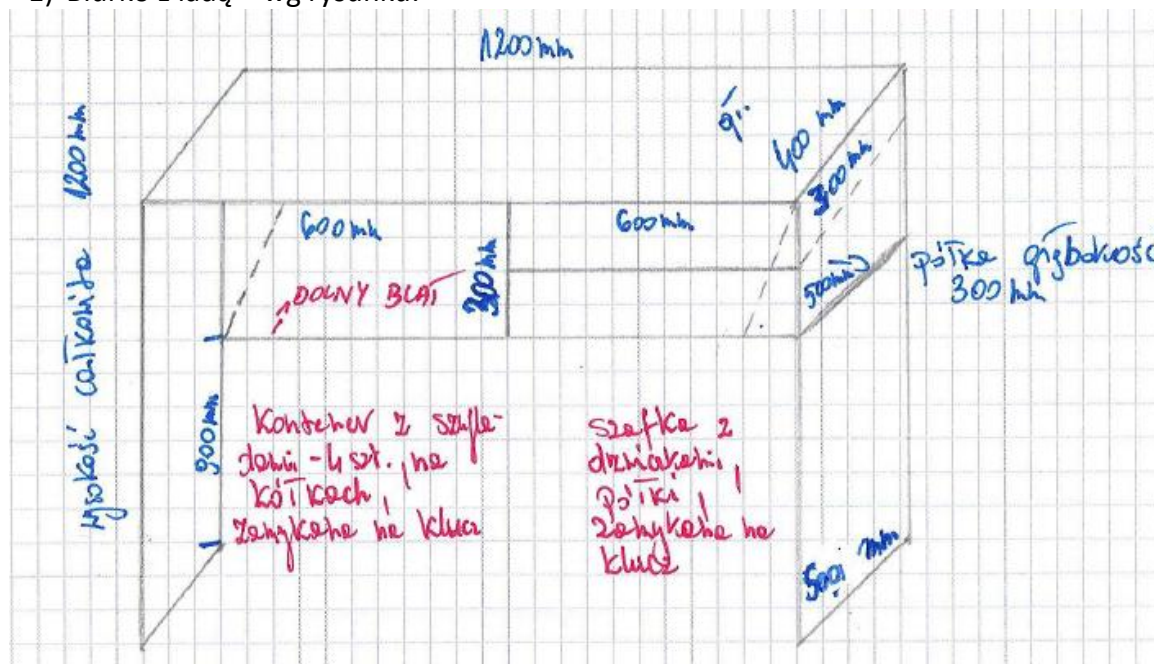 2) Biurko z ladą – wg rysunku:
1200 mm
wysokość całkowita 1200 mm
gł.
400 mm
300 mm
600 mm
600 mm
DOLNY BLAT
300 mm
500 mm
półka głębokość
300 mm
900 mm
Kontener z szufla-
dami - 4 szt., na
kółkach,
zamykane na klucz
szafka z
drzwiakami,
półki,
zamykane na
klucz
500 mm